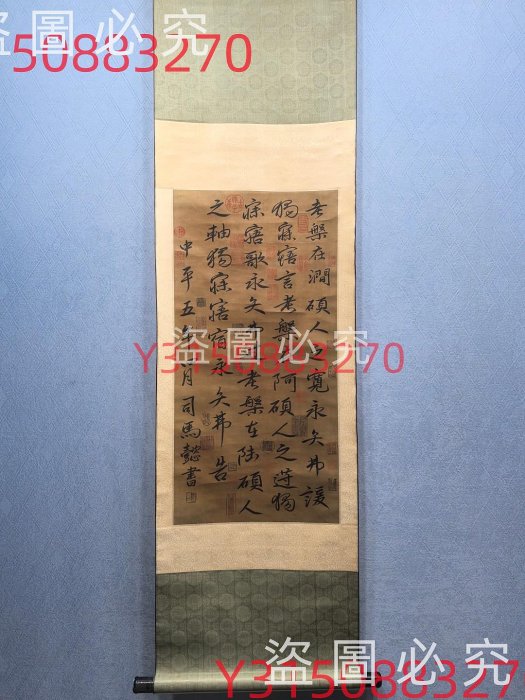 盜圖必究
50883270
考槃在澗碩人之寬永矢弗諼
獨寐寤言考槃在阿碩人之薖獨
寐寤歌永矢弗過考槃在陸碩人
之軸獨寐寤宿永矢弗告
中平五年月司馬懿書
盜圖必究
Y3150883270
盜圖必究
Y315088327